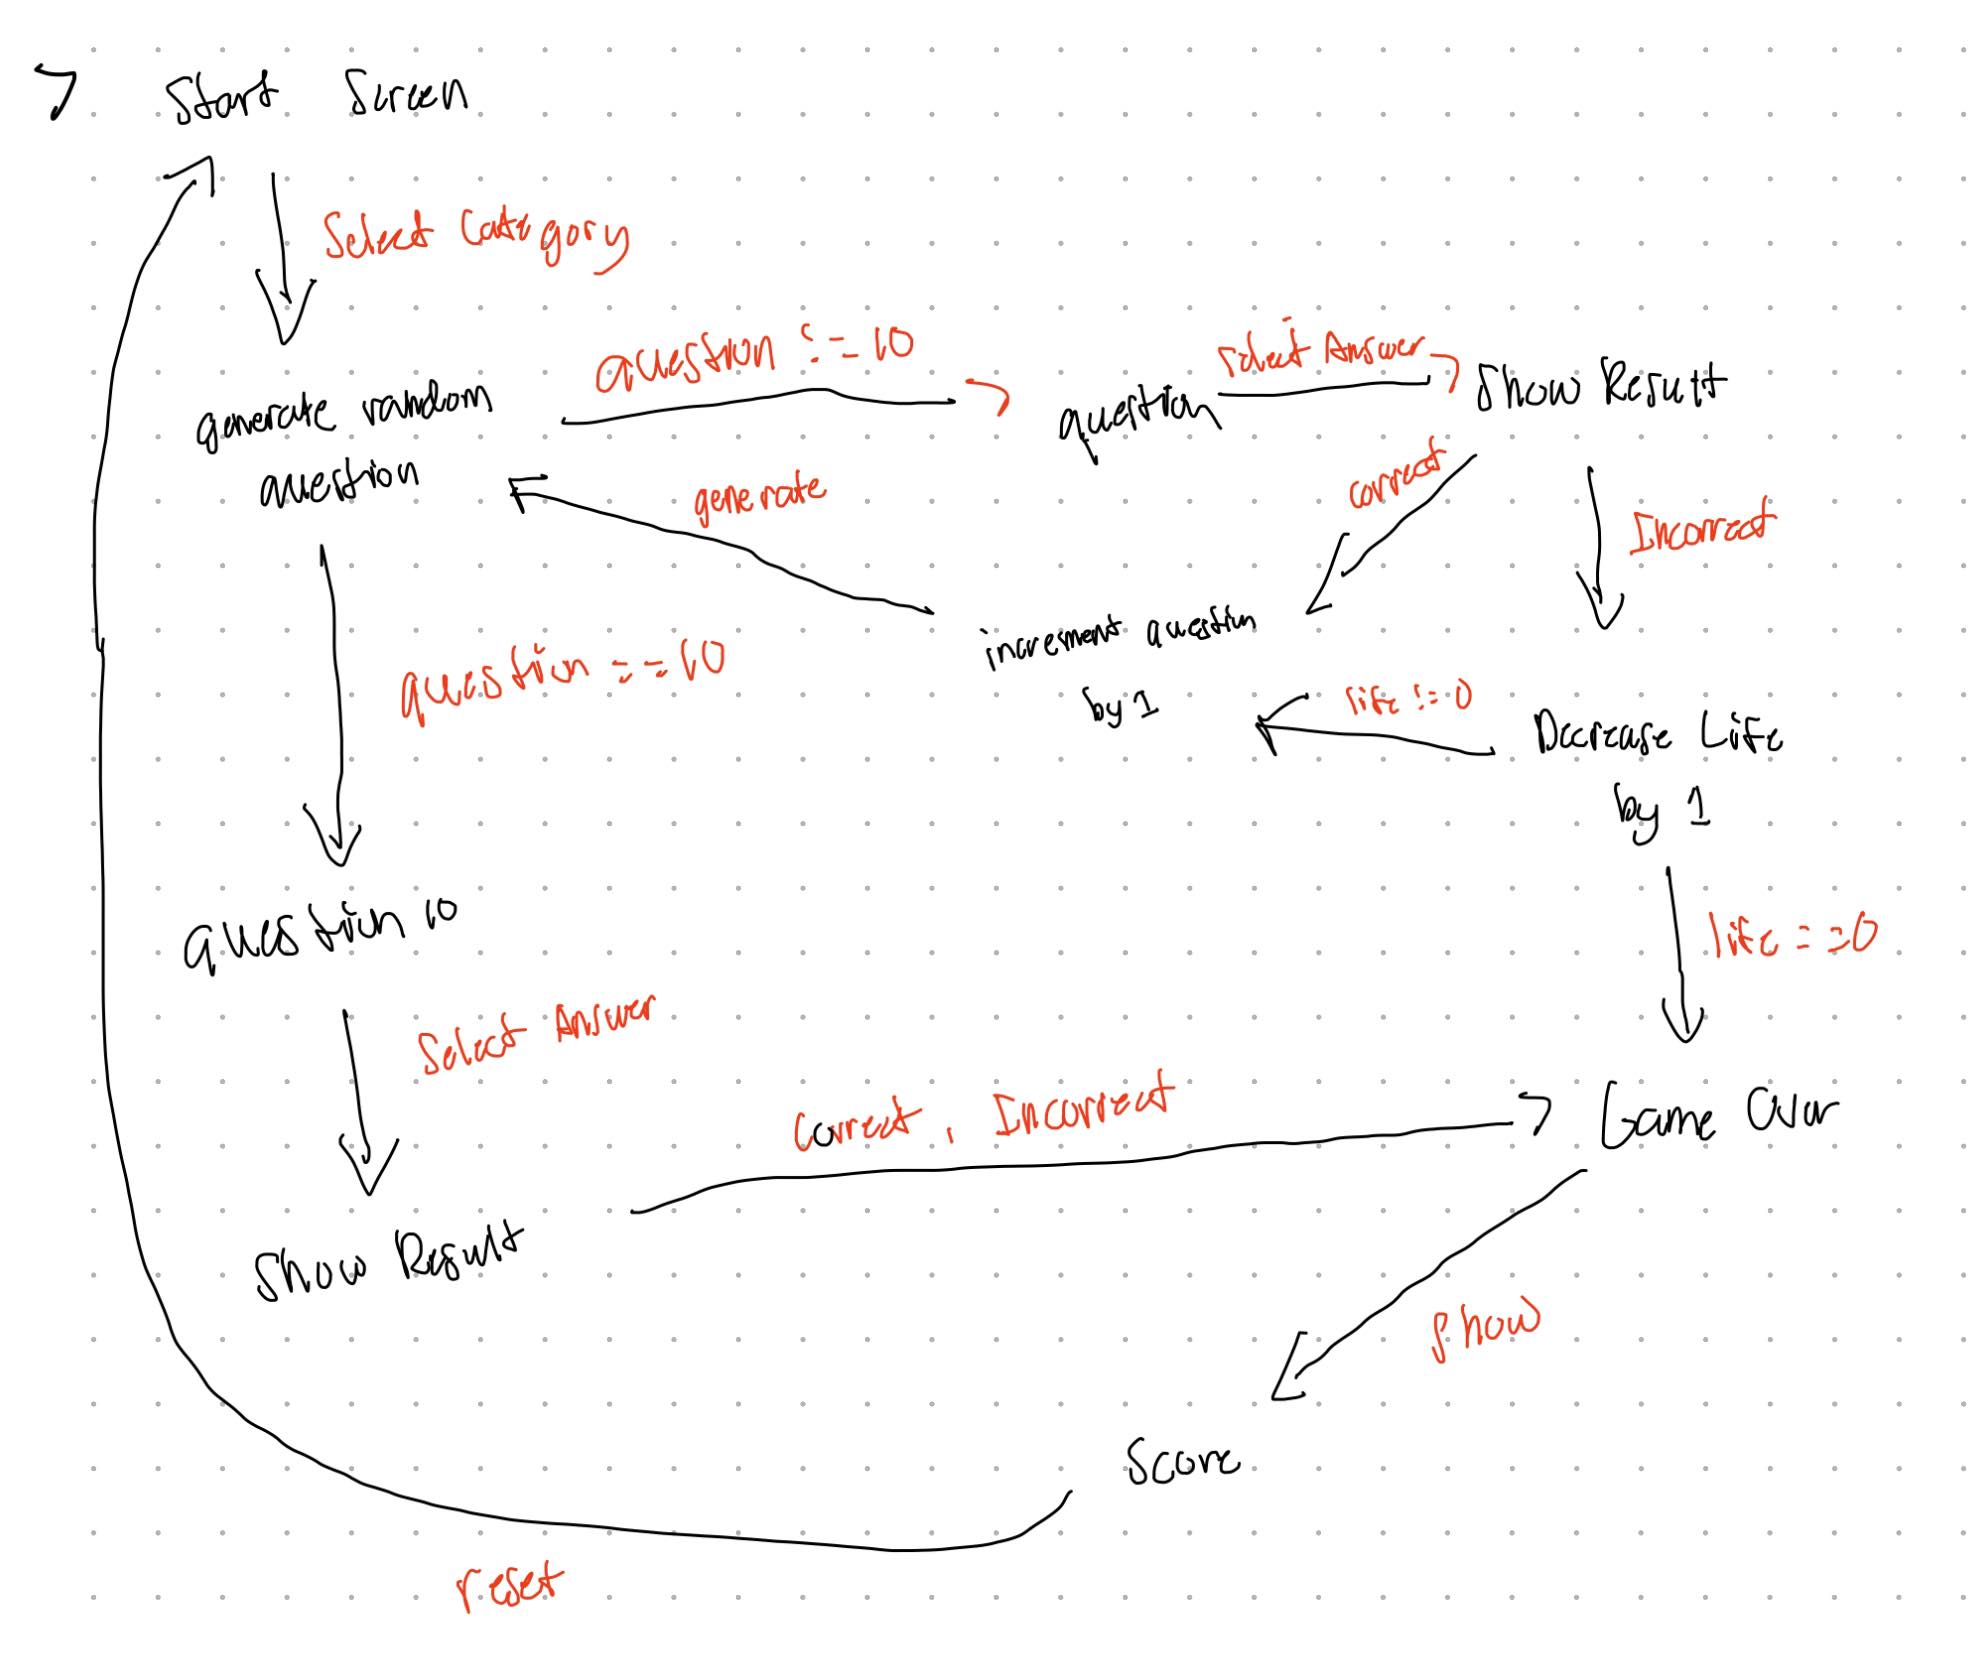 > Start Screen
Select Category
question != 10
generate random
question
question
select Answer
Show Result
generate
correct
Incorrect
increment question
by 1
life != 0
Decrease Life
by 1
question == 10
question 10
life == 0
Select Answer
Correct, Incorrect
Game Over
Show Result
show
Score
reset